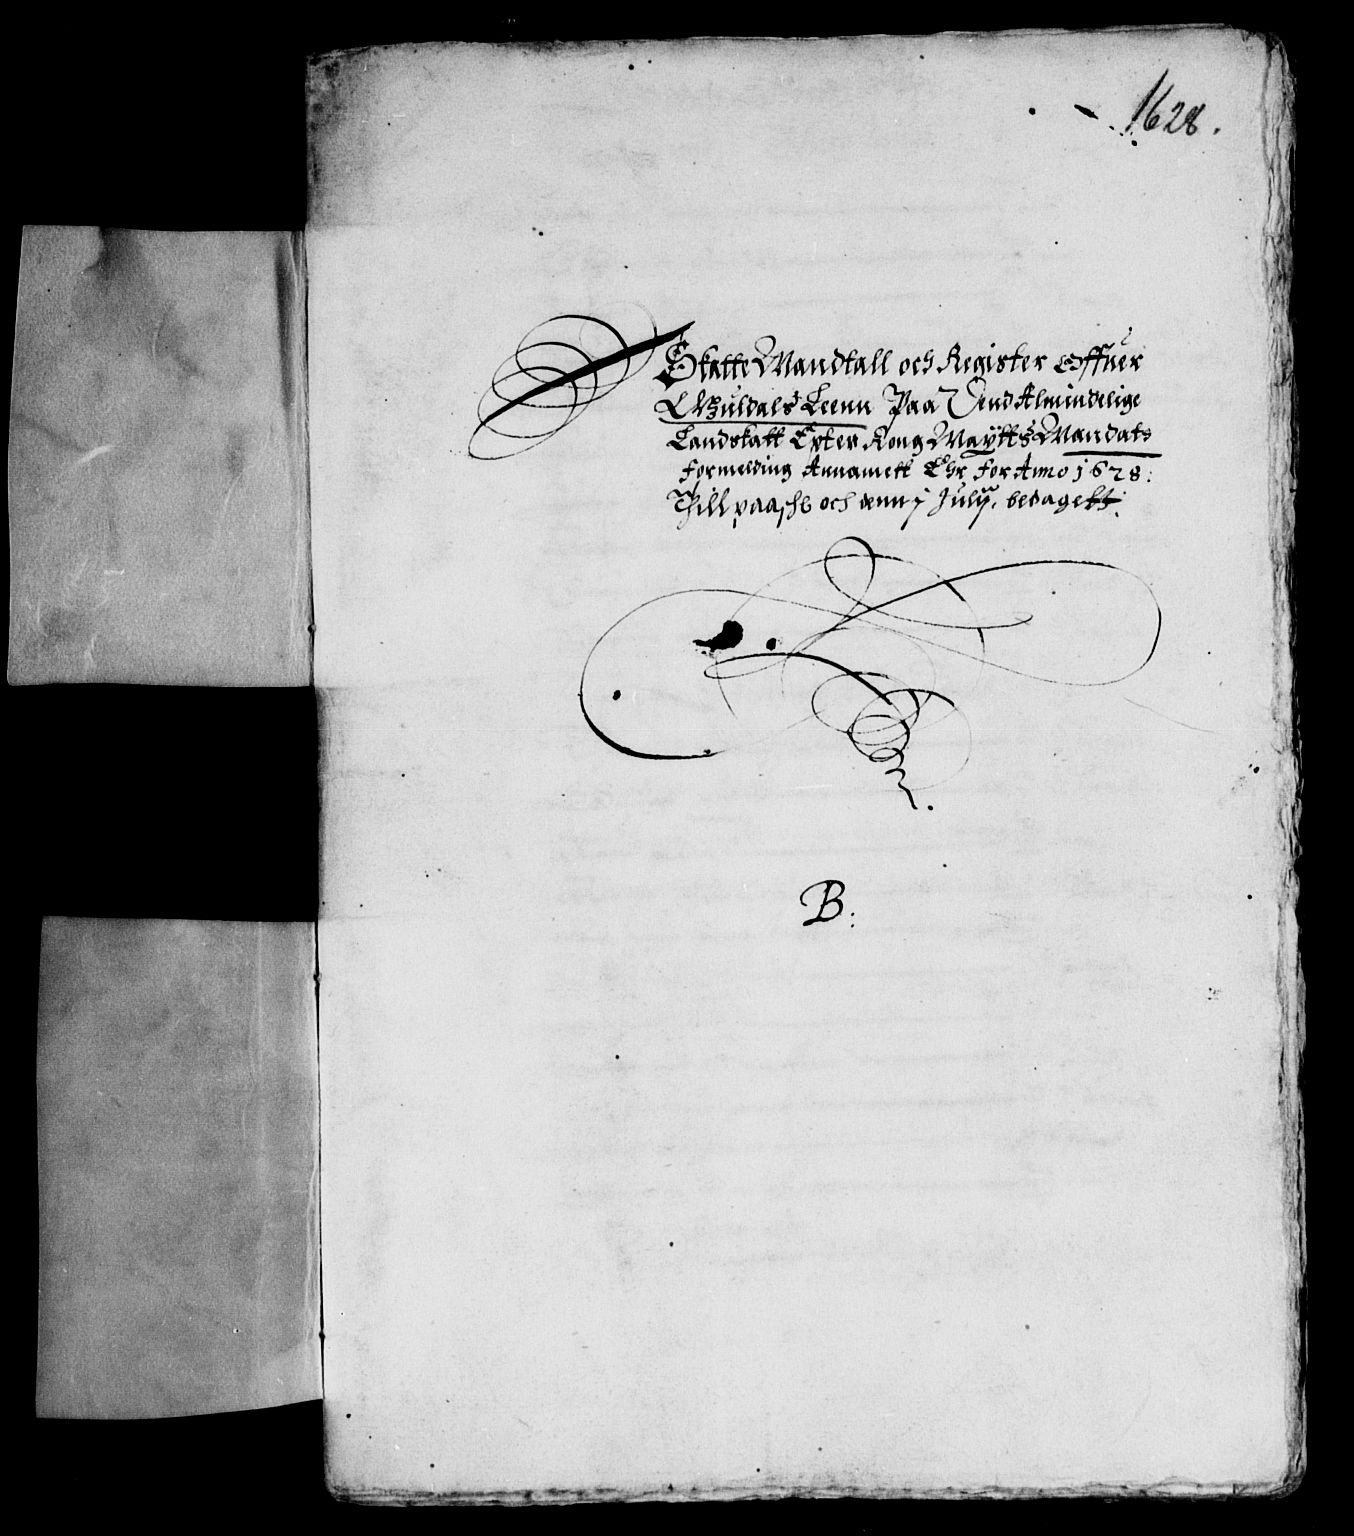 1628.
Skatte Mandtall och Register Offuer
Guldals Leenn Paa Dend Almindelige
Landskatt Epter Kong Maÿtts Mandats
formelding Annamett Ehr for Anno 1628:
Thill paasche och denn j Julÿ. bedagett.
B: